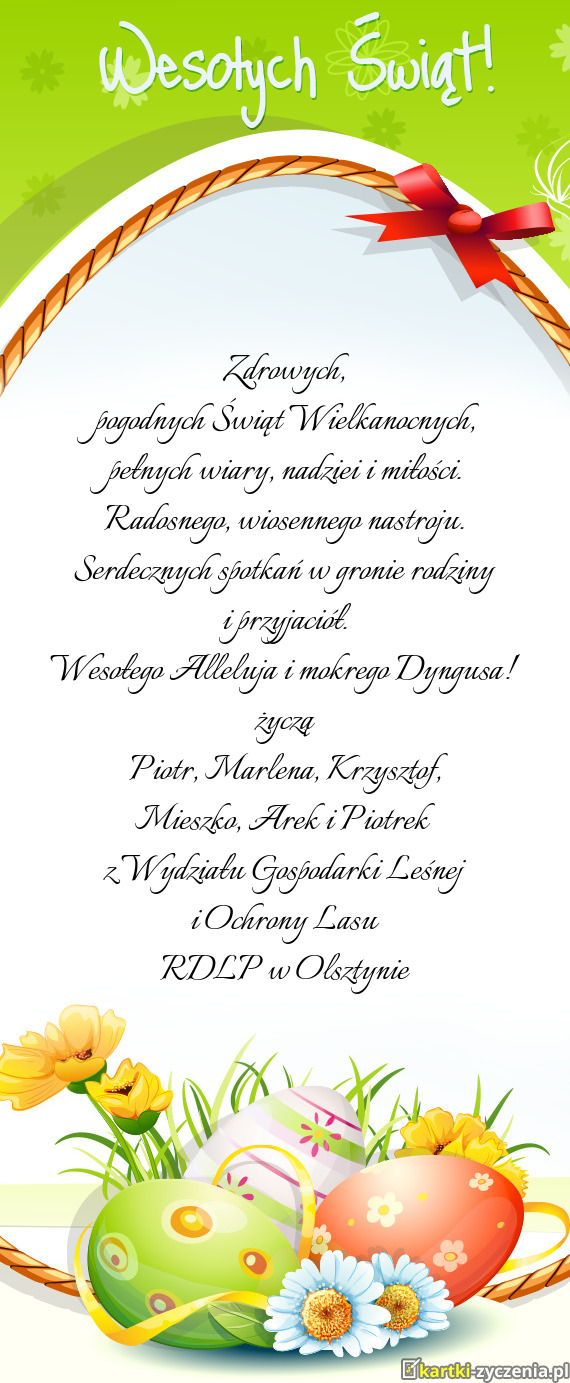 Wesołych Świąt!
Zdrowych,
pogodnych Świąt Wielkanocnych,
pełnych wiary, nadziei i miłości.
Radosnego, wiosennego nastroju.
Serdecznych spotkań w gronie rodziny
i przyjaciół.
Wesołego Alleluja i mokrego Dyngusa!
życzą
Piotr, Marlena, Krzysztof,
Mieszko, Arek i Piotrek
z Wydziału Gospodarki Leśnej
i Ochrony Lasu
RDLP w Olsztynie
kartki-zyczenia.pl